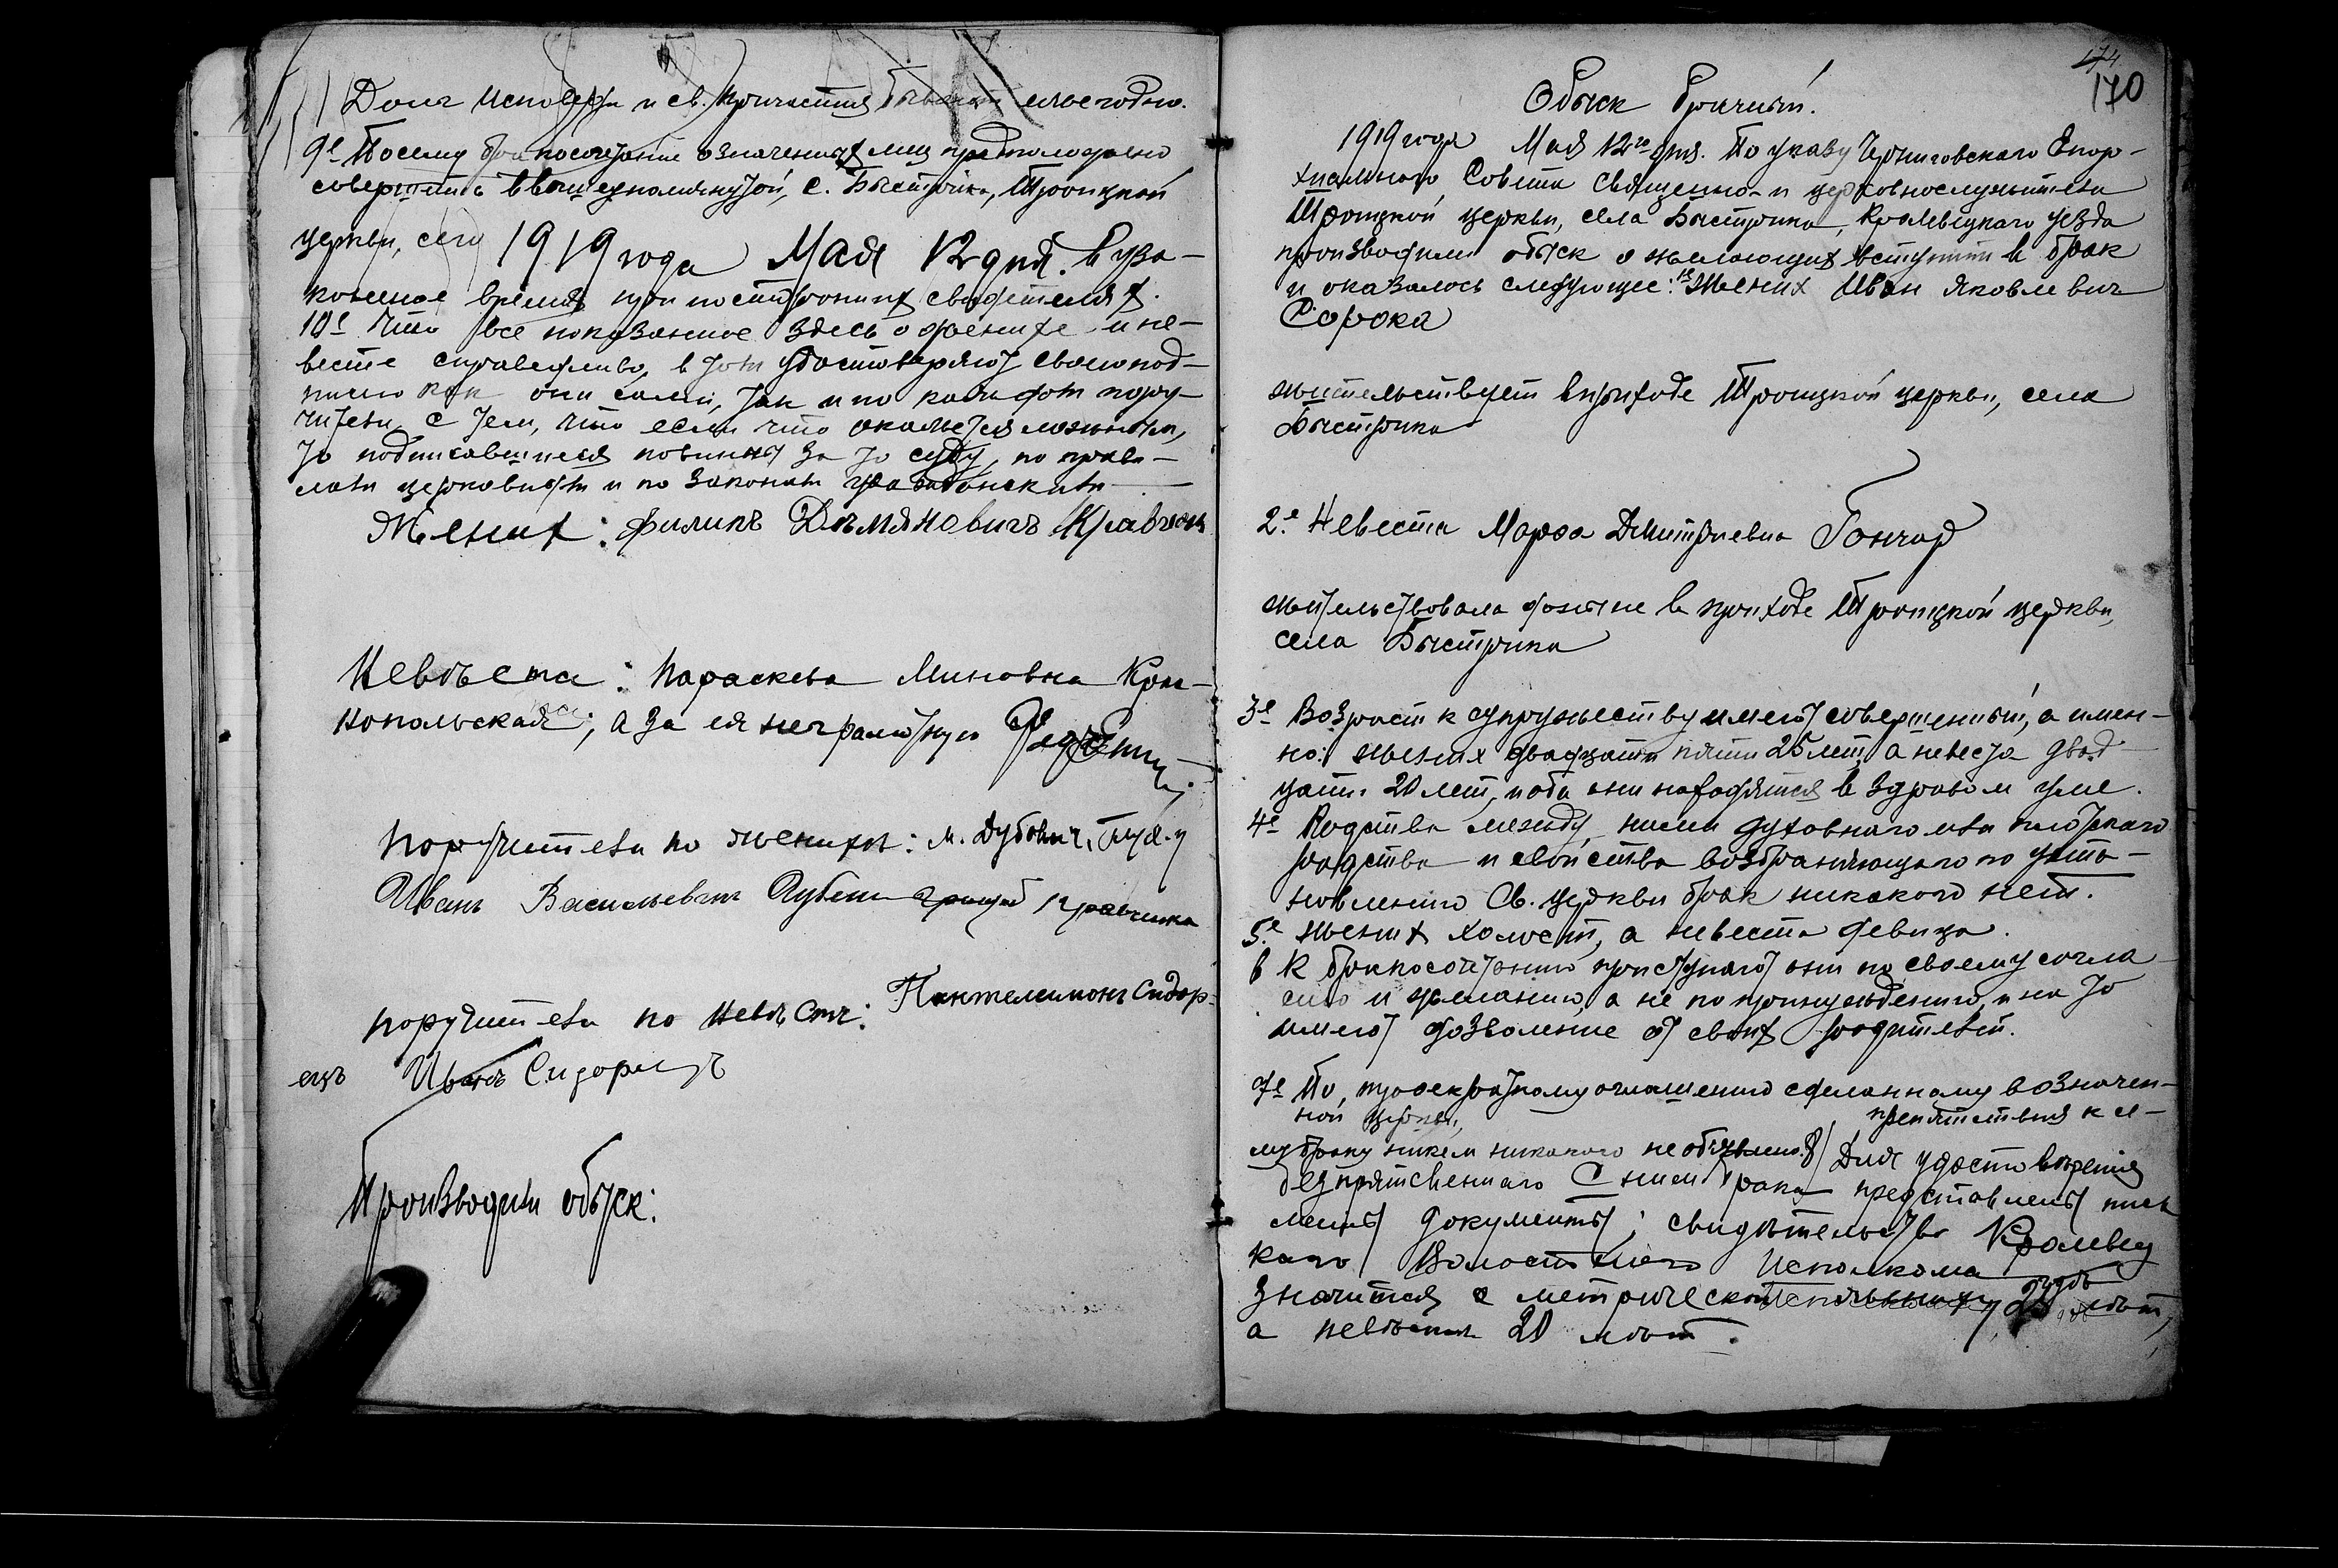 Долг исповеди и св. причастия бывают ежегодно.
9е Посему бракосочетание означенных лиц предположено
совершить в вышеупомянутой, с. Быстрика, Троицкой
церкви, сего 1919 года Мая 12 дня. в уза-
коненное время при посторонних свидетелях.
10е Что все показанное здесь о женихе и не-
весте справедливо, в том удостоверяют своею под-
писью как они сами, так и по каждом пору-
чители, с тем, что если что окажется ложным,
то подписавшиеся повинны за то суду, по прави-
лам церковным и по законам гражданским
Жених: Филипъ Демяновичъ Кравченк
Невѣста: Параскева Миновна Крас-
нопольская; а за ея неграмотную
поручители по женихѣ: М. Дубович,
Иванъ Васильевичъ Кравченко
поручители по невѣстѣ: Пантелеимонъ Сидор-
енъ Иванъ Сидоренъ
Производили обыск:
174
170
Обыск брачный.
1919 года Мая 12го дня. По указу Черниговскаго Епар-
хиальнаго Совета священно- и церковнослужители
Троицкой церкви, села Быстрика, Кролевецкаго уезда
производили обыск о желающих вступить в брак
и оказалось следующее: 1е Жених Иван Яковлевич
Сорока
жительствует в приходе Троицкой церкви, села
Быстрика
2.е Невеста Марфа Дмитриевна Гончар
жительствовала доныне в приходе Троицкой церкви,
села Быстрика
3е Возраст к супружеству имеют совершенный, а имен-
но: жених двадцати пяти 25 лет, а невеста двад-
цати 20 лет, и оба они находятся в здравом уме.
4е Родства между ними духовнаго или плотскаго
родства и свойства возбраняющаго по уста-
новлению Св. церкви брак никакого нет.
5.е Жених холост, а невеста девица.
6 К бракосочетанию приступают они по своему согла-
сию и желанию, а не по принуждению, и на то
имеют дозволение от своих родителей.
7е По троекратному оглашению сделанному в означен-
ной церкви, препятствия к се-
му браку никем никакого не объявлено. 8/ Для удостовѣрения
безпрятсвеннаго С ним брака представлены пись
менны документы; свидѣтельство Кролевец
каго Волостного Исполкома
значится в метрической лѣт,
а невѣсте 20 лѣт.